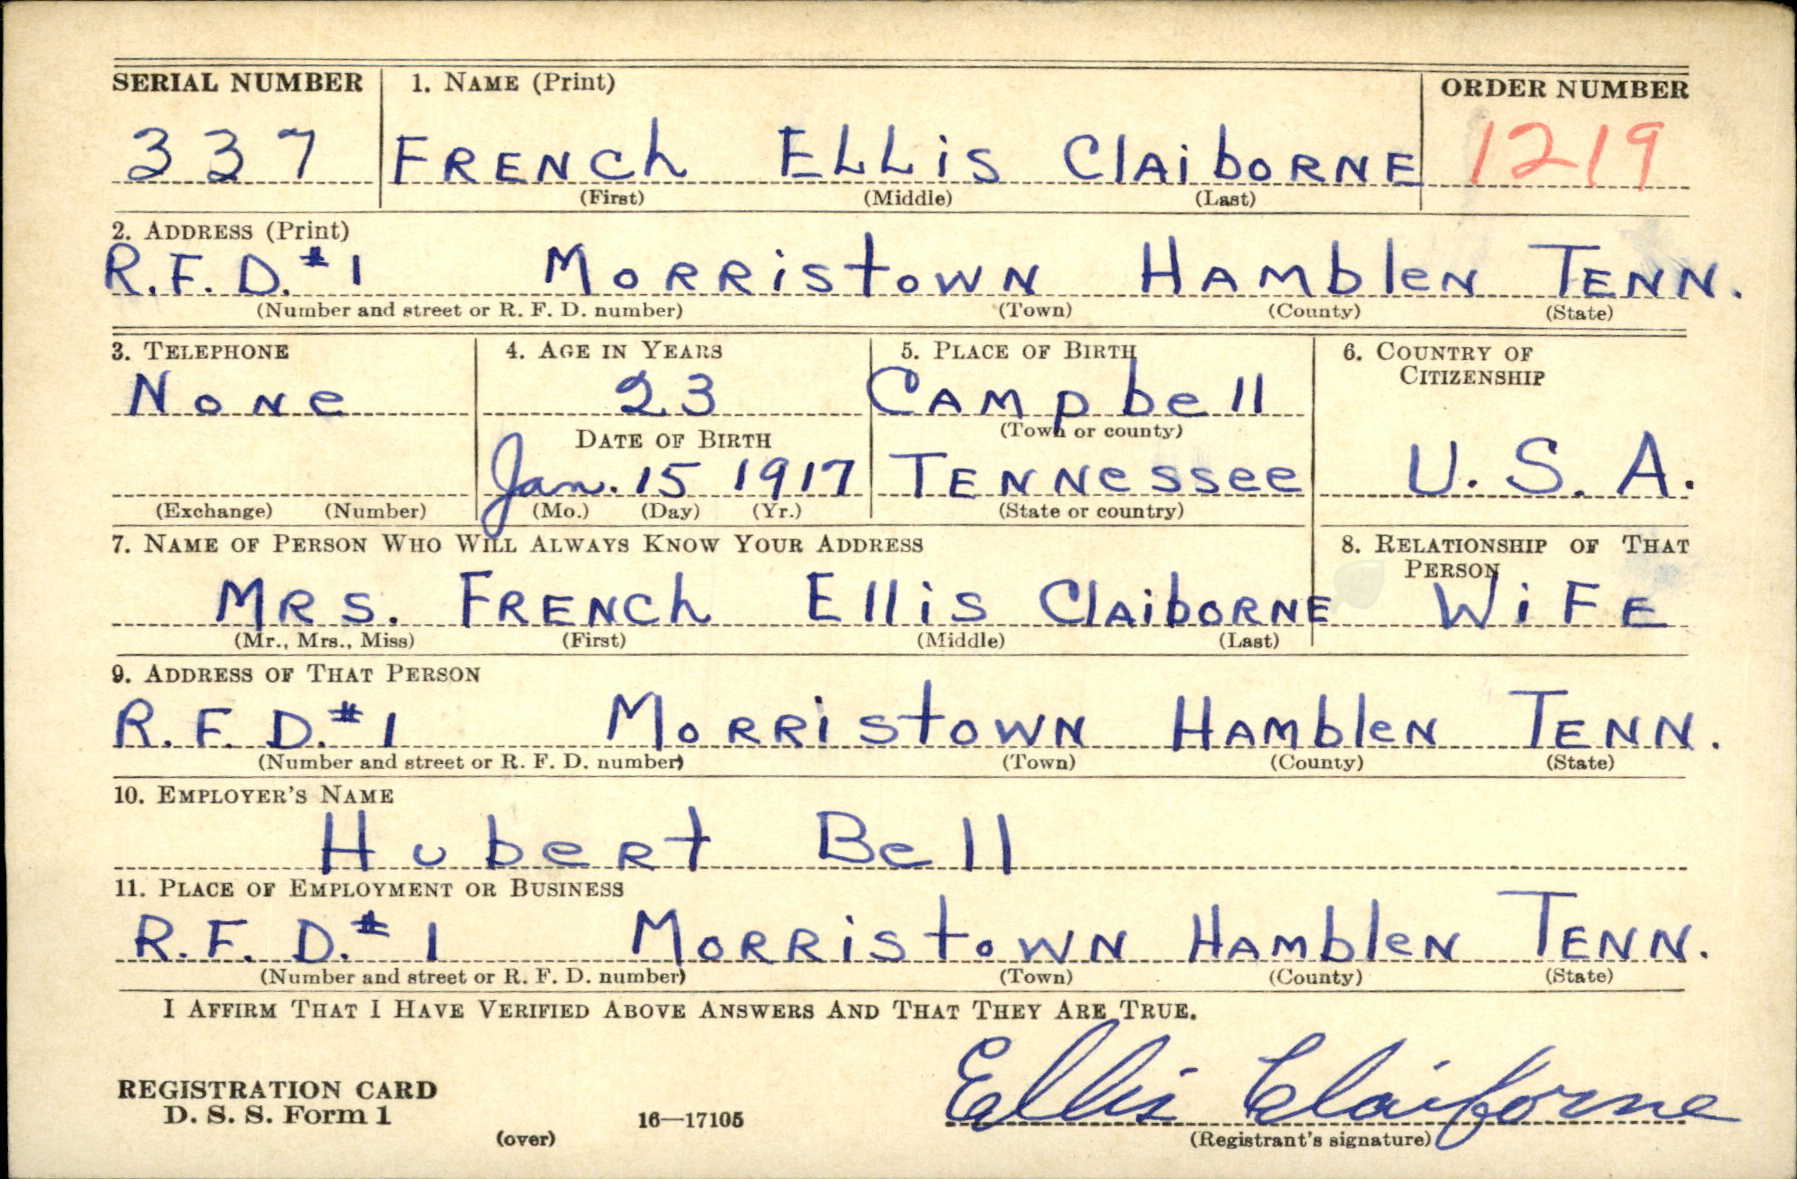 SERIAL NUMBER 1. NAME (Print) ORDER NUMBER
337 FRENCh ELLiS ClAiboRNE 1219
(First) (Middle) (Last)
2. ADDRESS (Print)
R.F.D. #1 MoRRiStoWN HAMblEN TENN.
(Number and street or R. F. D. number) (Town) (County) (State)
3. TELEPHONE 4. AGE IN YEARS 5. PLACE OF BIRTH 6. COUNTRY OF
CITIZENSHIP
NoNe 23 CAMpbell
(Town or county)
DATE OF BIRTH
Jan. 15 1917 TENNessee U.S.A.
(Exchange) (Number) (Mo.) (Day) (Yr.) (State or country)
7. NAME OF PERSON WHO WILL ALWAYS KNOW YOUR ADDRESS 8. RELATIONSHIP OF THAT
PERSON
MRS. FRENCh EllіS ClAibORNE WiFE
(Mr., Mrs., Miss) (First) (Middle) (Last)
9. ADDRESS OF THAT PERSON
R.F.D. #1 MoRRiStoWN HAMblEN TENN.
(Number and street or R. F. D. number) (Town) (County) (State)
10. EMPLOYER'S NAME
HubeRt Bell
11. PLACE OF EMPLOYMENT OR BUSINESS
R.F.D. #1 MoRRiStoWN HAMbleN TENN.
(Number and street or R. F. D. number) (Town) (County) (State)
I AFFIRM THAT I HAVE VERIFIED ABOVE ANSWERS AND THAT THEY ARE TRUE.
Ellis Claiborne
REGISTRATION CARD
D. S. S. Form 1 16—17105
(over) (Registrant's signature)